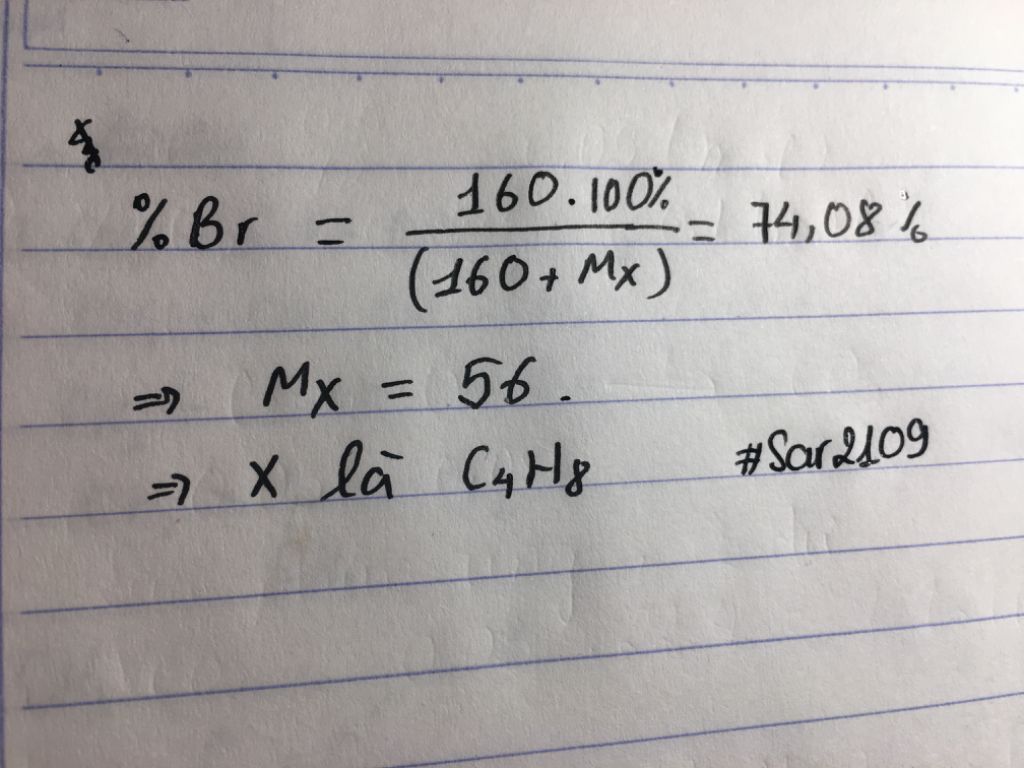 %Br = 160.100% / (160 + Mx) = 74,08%
=> Mx = 56.
=> X là C4H8 #Sar2109